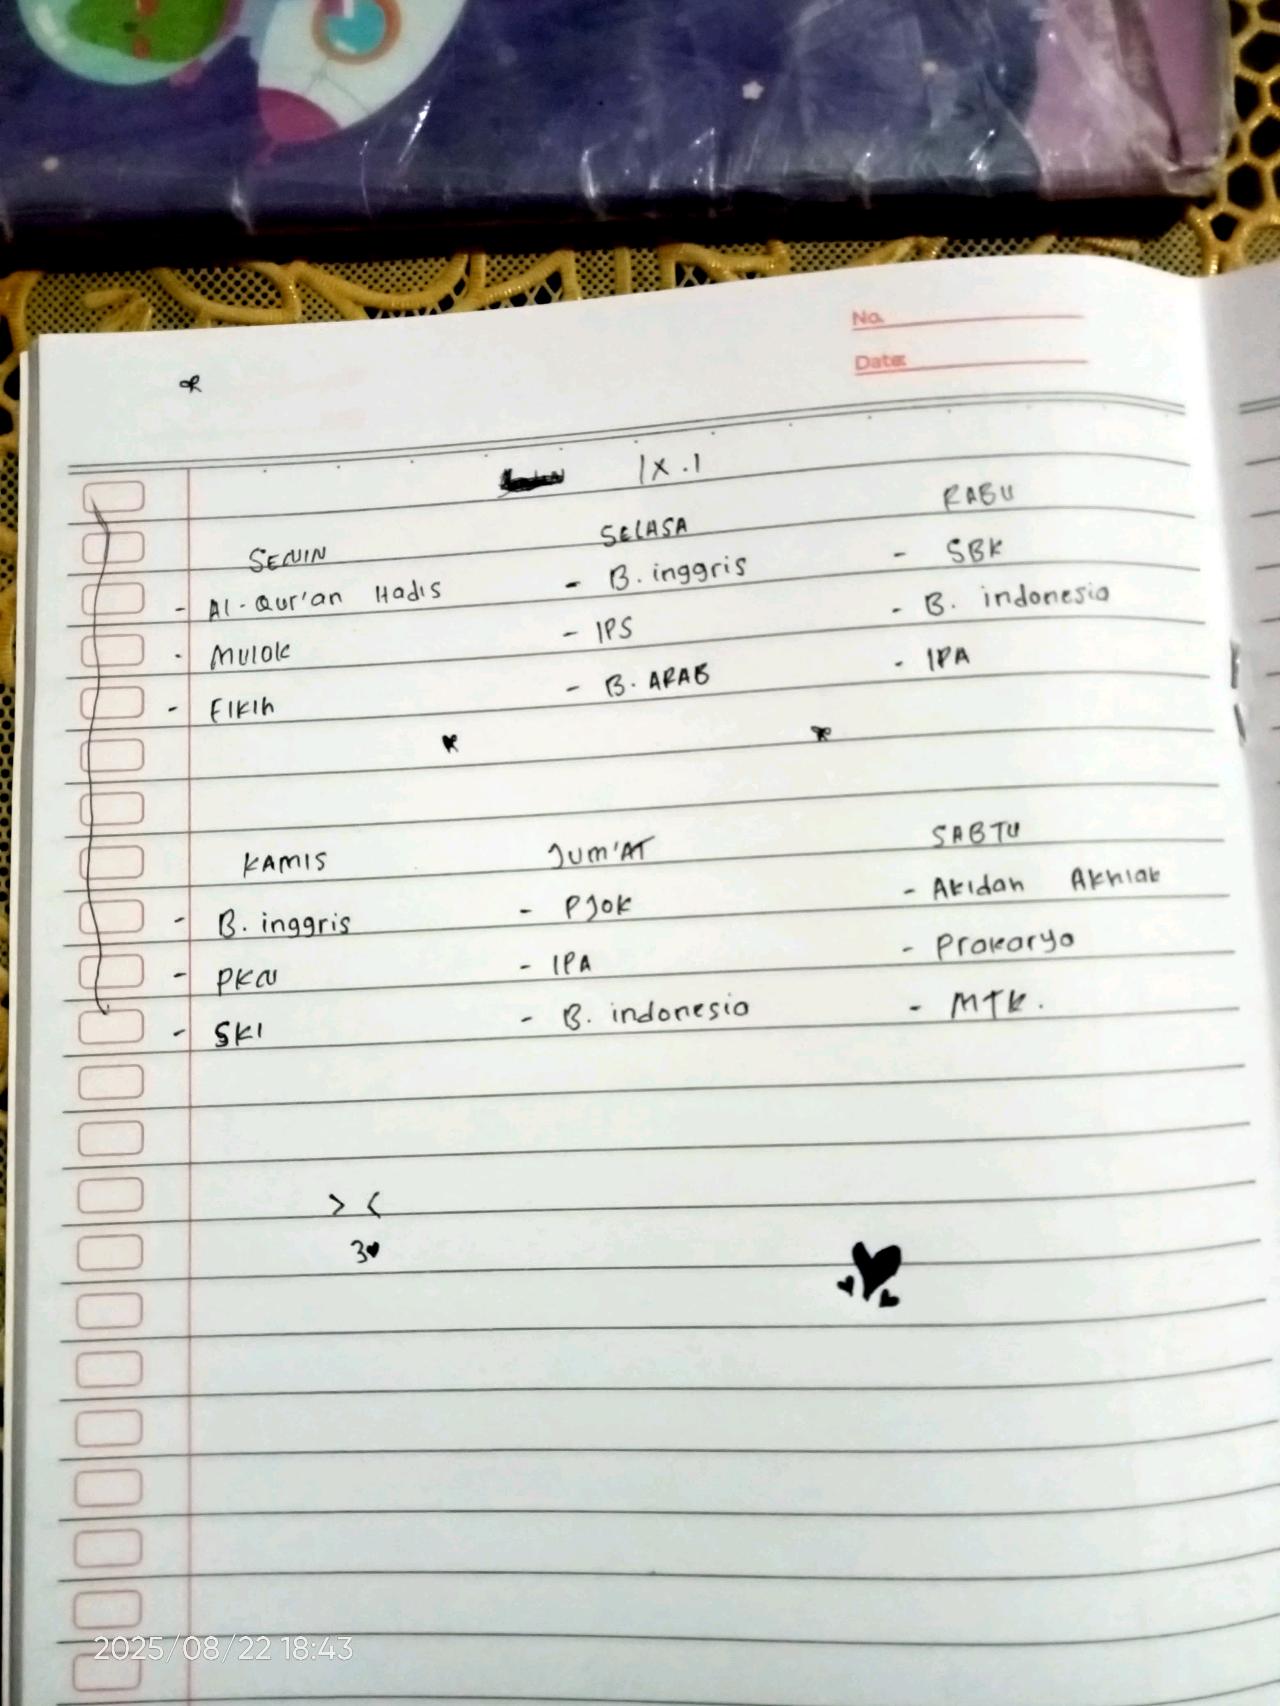 No.
Date:
IX.1
SENIN
SELASA
RABU
- Al-Qur'an Hadis
- B. inggris
- SBK
- Mulok
- IPS
- B. indonesia
- Fikih
- B. ARAB
- IPA
KAMIS
JUM'AT
SABTU
- B. inggris
- PJOK
- Akidah Akhlak
- PKN
- IPA
- Prakarya
- SKI
- B. indonesia
- MTK.
> <
3♥
2025/08/22 18:43